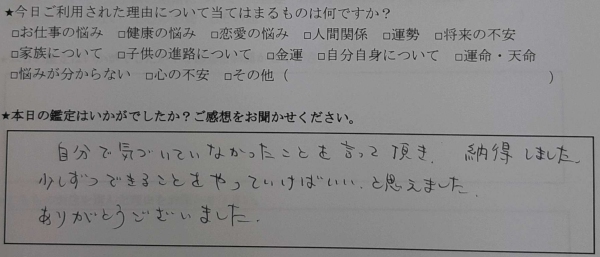 ★今日ご利用された理由について当てはまるものは何ですか?
□お仕事の悩み □健康の悩み □恋愛の悩み □人間関係 □運勢 □将来の不安
□家族について □子供の進路について □金運 □自分自身について □運命・天命
□悩みが分からない □心の不安 □その他( )
★本日の鑑定はいかがでしたか?ご感想をお聞かせください。
自分で気づいていなかったことを言って頂き、納得しました
少しずつできることをやっていけばいい、と思えました。
ありがとうございました。